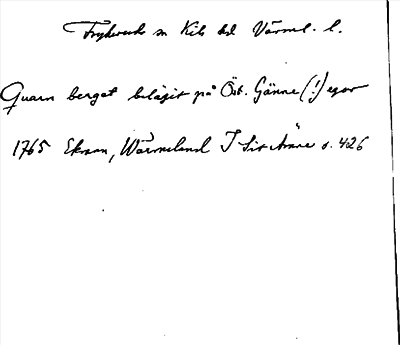 Frykeruds sn Kils hd Värml. l.
Quarn berget belägit på Öst. Gänne(!) egor
1765 Ekman, Wärmeland I s. 426